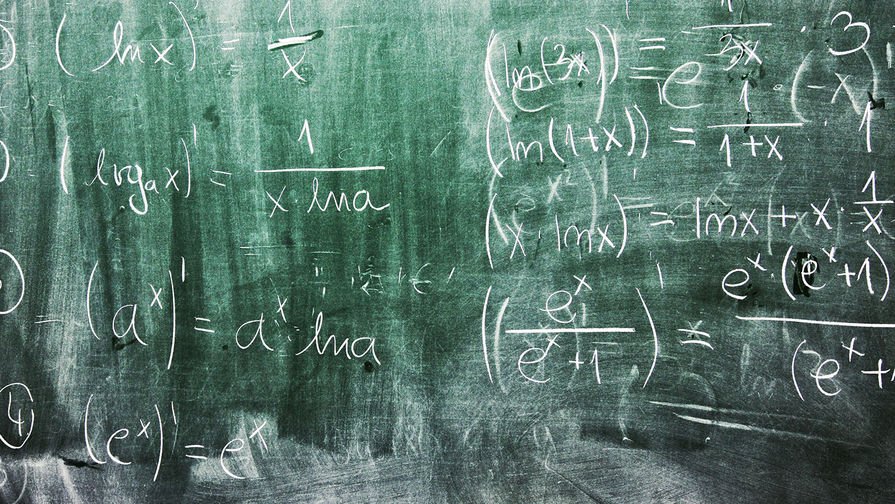 (ln x)' = 1/x
(log_a x)' = 1/(x · ln a)
(a^x)' = a^x · ln a
4) (e^x)' = e^x
(ln(3x))' = 1/3x · 3
(ln(1+x))' = 1/(1+x) · 1
(x · ln x)' = ln x + x · 1/x
(e^x/(e^x+1))' = e^x · (e^x+1)/(e^x+